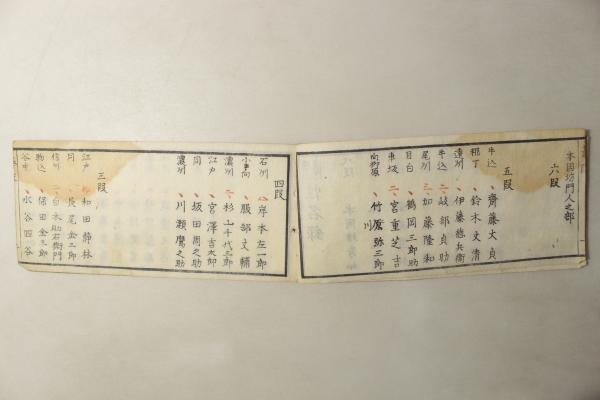 本因坊門人之部
六段
五段
牛込 齋藤大貞
根丁 鈴木文清
遠州 伊藤徳兵衛
牛込 哉部貞助
尾州 加藤隆和
目白 鶴岡三郎助
赤坂 宮重芝吉
竹屋弥三郎
四段
石州 岸本左一郎
小南 服部文輔
濃州 杉山千代三郎
江戸 宮澤吉太郎
同 坂田周之助
濃州 川瀬鷹之助
三段
江戸 和田静林
同 長尾金二郎
信州 白木助右衛門
牛込 保田金三郎
谷中 水谷四谷